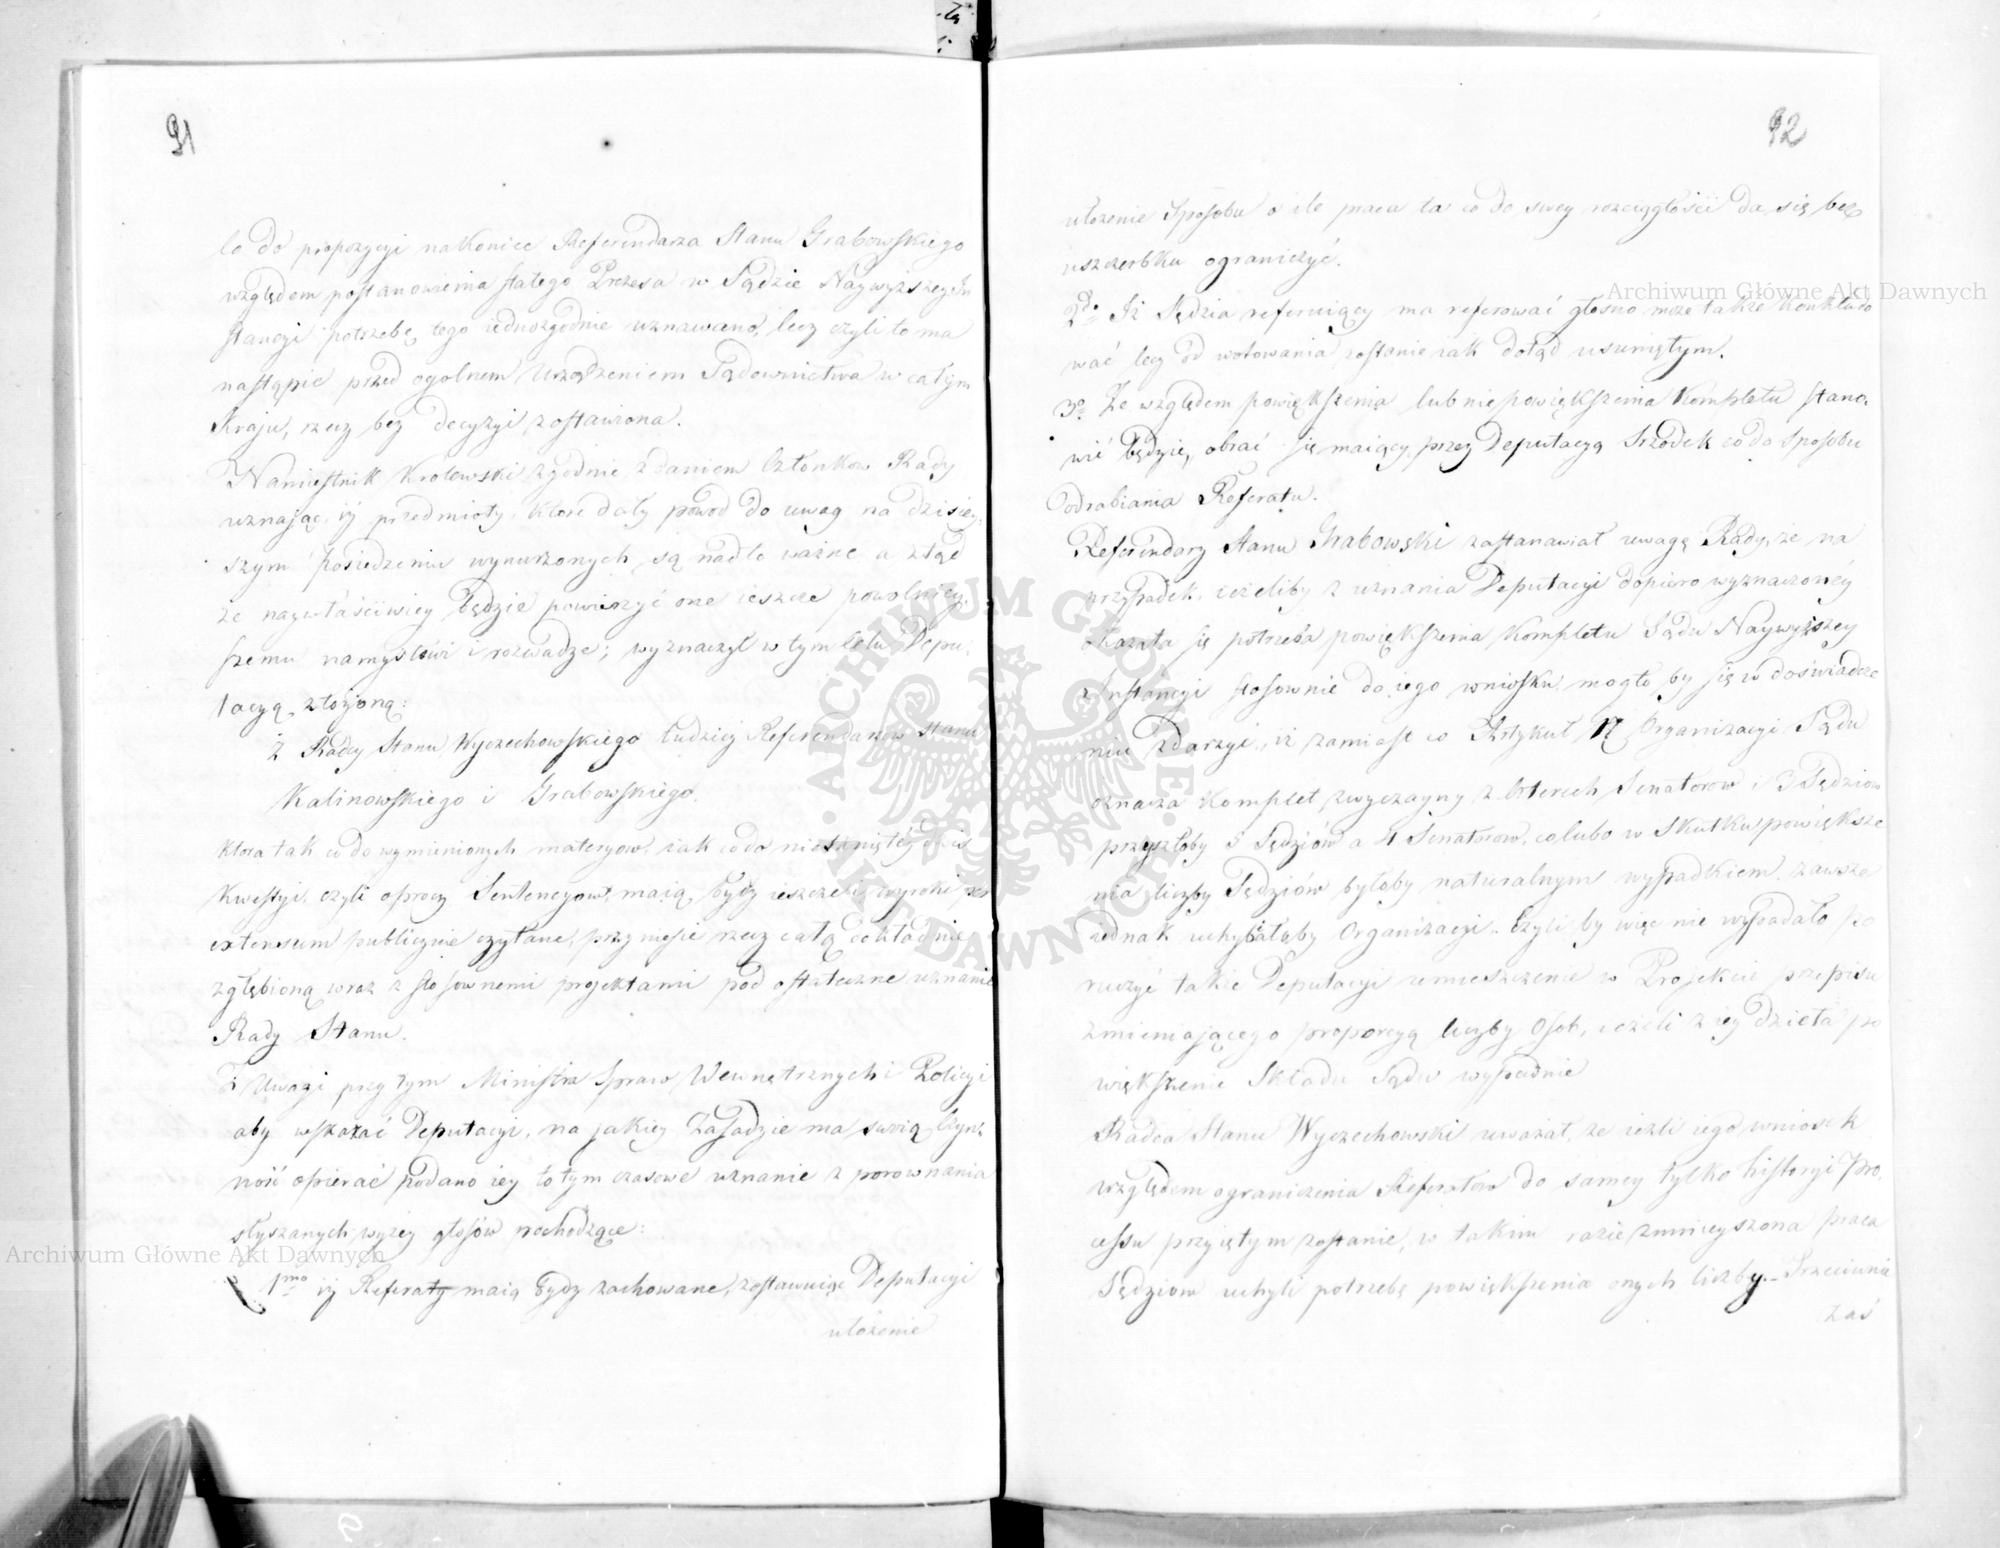 91
lo do propozycyi nakoniec Referendarza Stanu Grabowskiego
względem postanowienia stałego Prezesa w Sądzie Naywyższey In
stancyi potrzebę tego iednozgodnie uznawano, lecz czyli to ma
nastąpić przed ogolnem Urządzeniem Sądownictwa w całym
Kraju, rzecz bez decyzyi zostawiona.
Namiestnik Krolewski zgodnie z daniem Członkow Rady
uznając iż przedmioty, ktore dały powod do uwag na dzisiey,
szym posiedzeniu wynurzonych są nadto ważne a ztąd
że naywłaściwiey będzie powierzyć one ieszcze powolniey,
szemu namysłowi i rozwadze; wyznaczył w tym celu Depu,
tacyą złożoną:
Z Radcy Stanu Wyczechowskiego tudzież Referendarzow Stanu
Kalinowskiego i Grabowskiego.
ktora tak co do wymienionych materyow, iak co do nietkniętéy dziś
kwestyi, czyli oprocz Sentencyow, maią bydź ieszcze i wyroki per
extensum publicznie czytane, przyniesie rzecz całą dokładnie
zgłębioną wraz z stosownemi projektami pod ostateczne uznanie
Rady Stanu.
Z Uwagi przy tym Ministra Spraw Wewnętrznych i Policyi
aby wskazać Deputacyi, na jakiey Zasadzie ma swoią Czyn,
ność opierać podano iey to tym czasowe uznanie z porownania
słyszanych wyżey głosów pochodzące:
1mo iż Referaty maią bydź zachowane, zostawuiąc Deputacyi
ułożenie
92
ułożenie Sposobu o ile praca ta co do swey rozciągłości da się bez
uszczerbku ograniczyć.
2do Iż Sędzia referuiący ma referować głośno może także konkludo
wać lecz od wotowania zostanie iak dotąd usuniętym.
3o Że względem powiększenia lub niepowiększenia Kompletu stano,
wić będzie, obrać się maiący przez Deputacyą Srzodek co do Sposobu
odrabiania Referatu.
Referendarz Stanu Grabowski zastanawiał uwagę Rady, że na
przypadek, ieżeliby z uznania Deputacyi dopiero wyznaczonéy
okazała się potrzeba powiększenia Kompletu Sądu Naywyższey
Instancyi stosownie do iego wniosku, mogło by się w doświadcze
niu zdarzyć, iż zamiast co Artykuł 17 Organizacyi Sądu
oznacza Komplet zwyczayny z czterech Senatorow i 3 Sędziow
przyszłoby 5 Sędziów a 4 Senatorow, co lubo w skutku powiększe
nia liczby Sędziów byłoby naturalnym wypadkiem, zawsze
iednak uchybiałoby Organizacyi. Czyli by więc nie wypadało po
ruczyć także Deputacyi umieszczenie w Projekcie przepisu
zmieniającego proporcyą liczby Osob, ieżeli z iey dzieła po
większenie Składu Sądu wypadnie
Radca Stanu Wyczechowski uważał, że ieżli iego wniosek
względem ograniczenia Referatow do samey tylko historyi Pro,
cessu przyiętym zostanie, w takim razie zmnieyszona praca
Sędziow uchyli potrzebę powiększenia onych liczby. Przeciwnie
zaś
Archiwum Główne Akt Dawnych
Archiwum Główne Akt Dawnych
ARCHIWUM GŁÓWNE AKT DAWNYCH